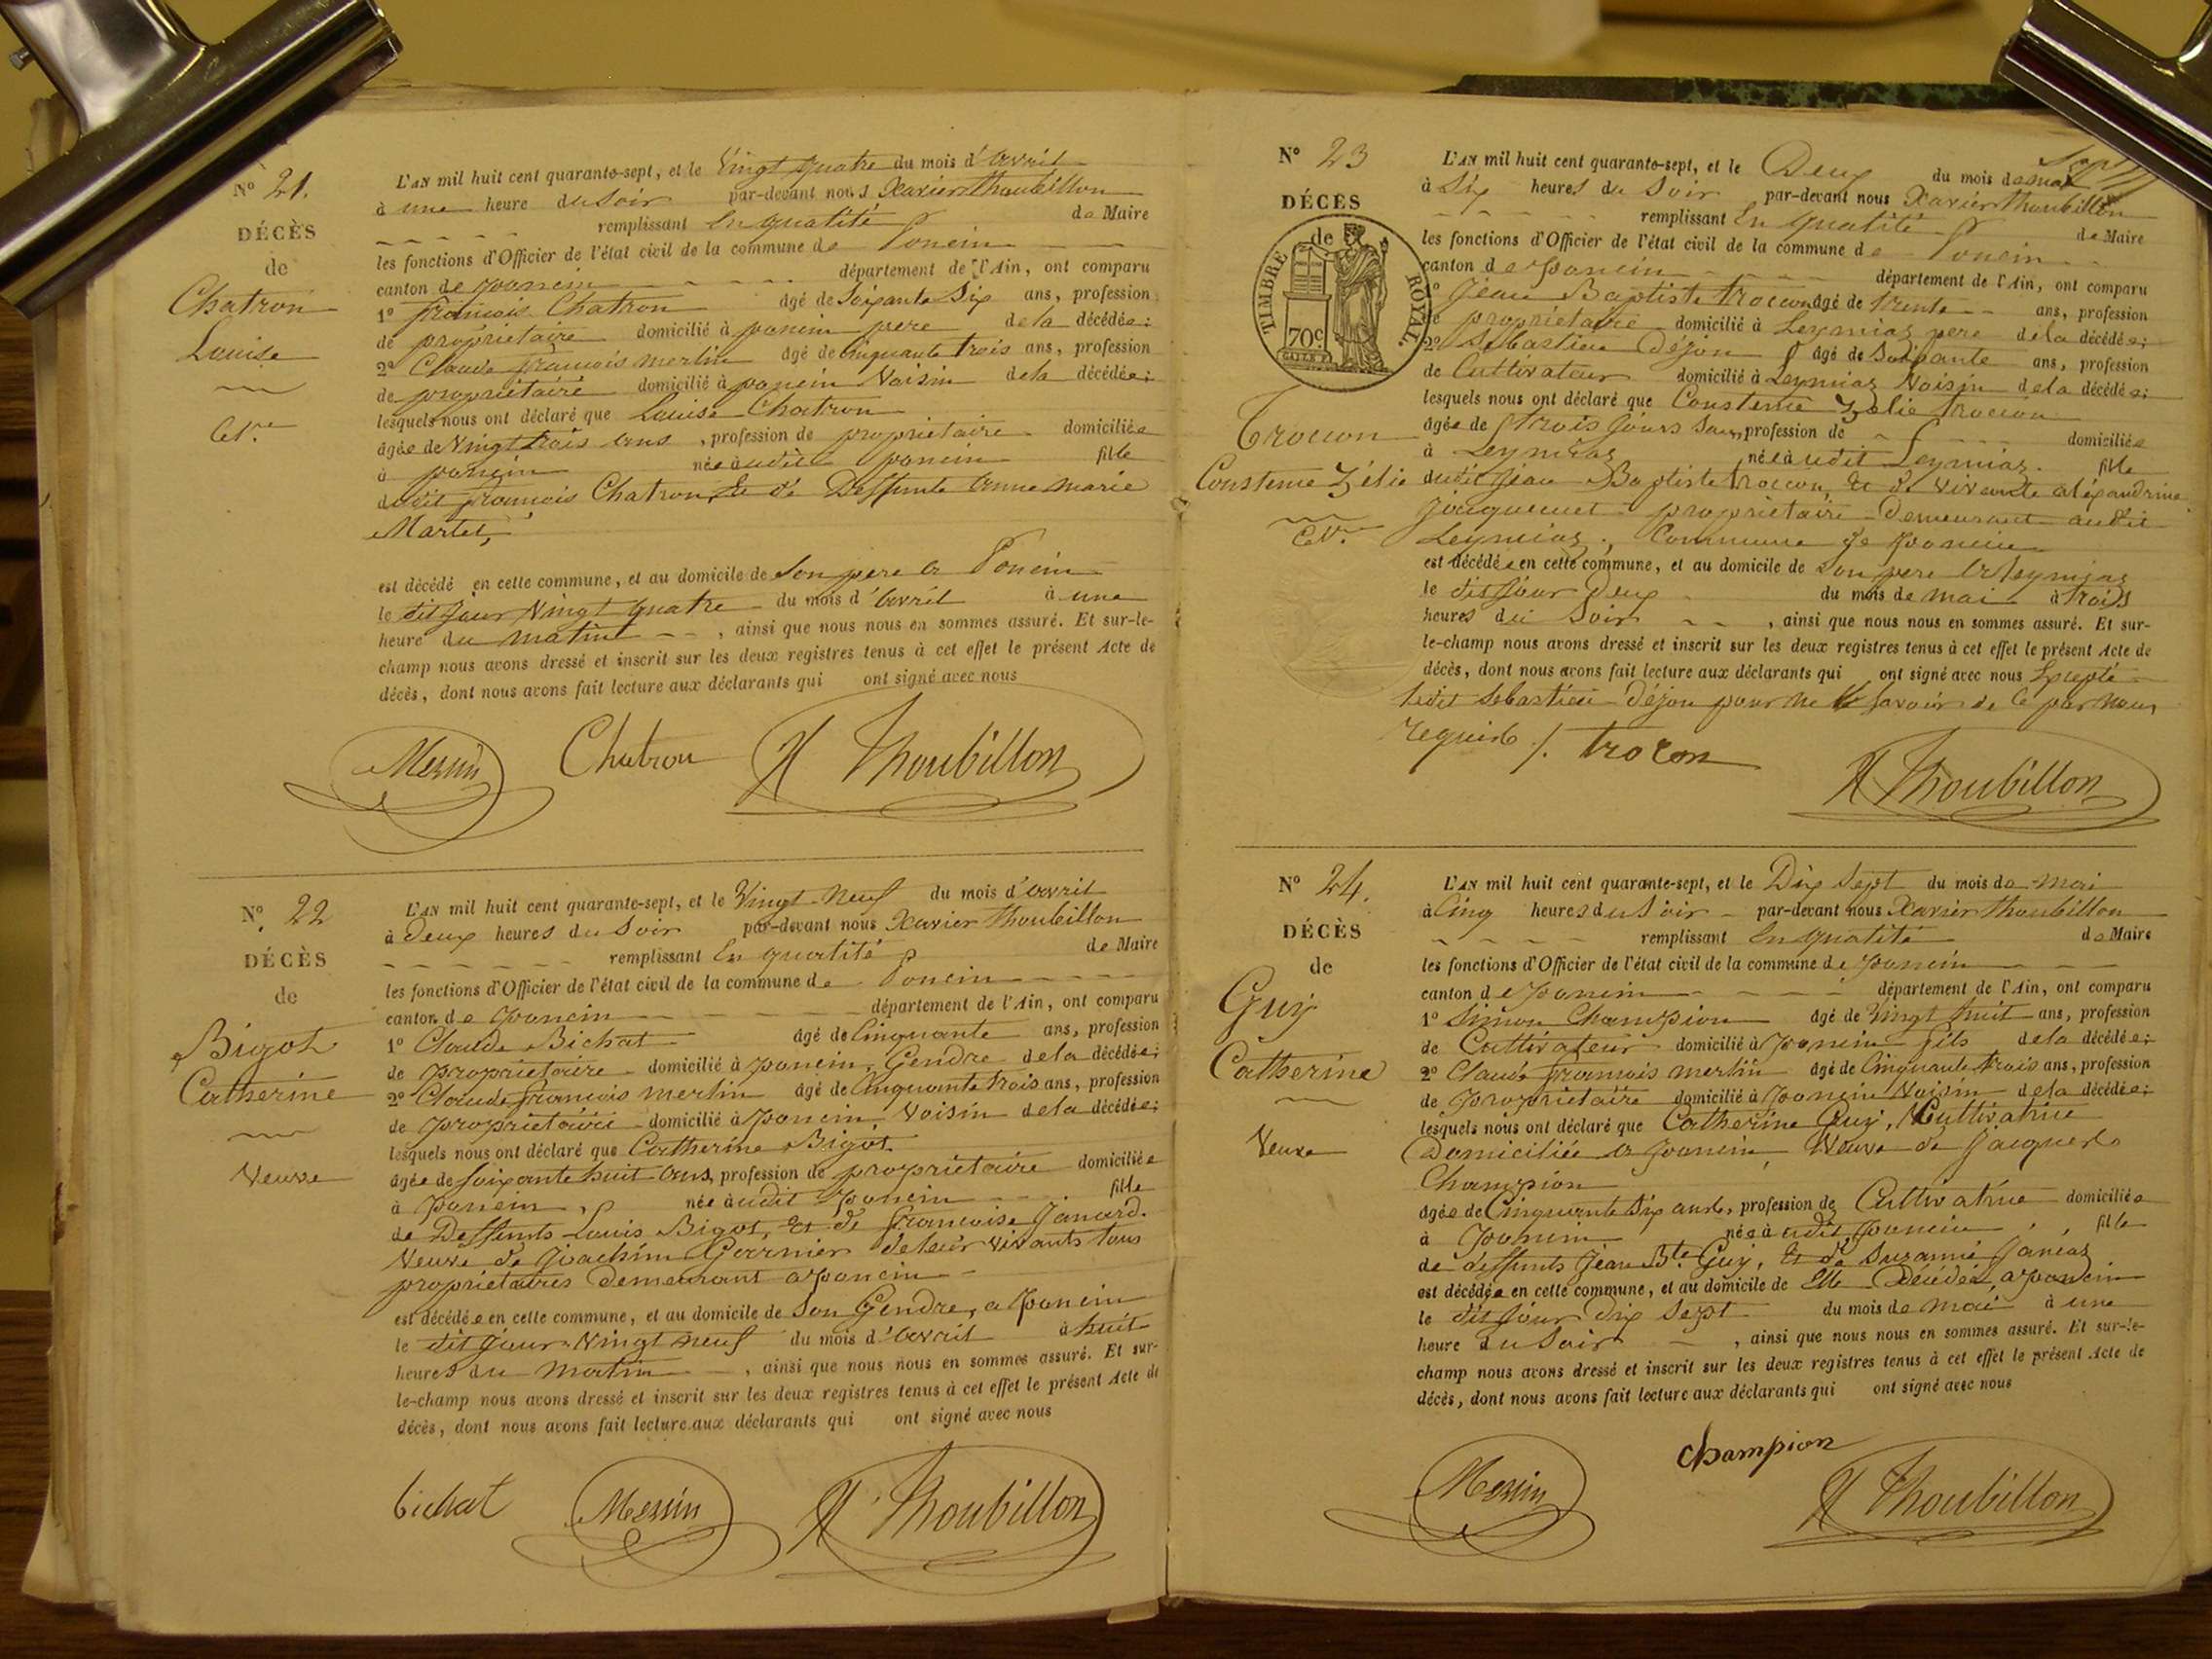 N° 21.
DÉCÈS
de
Chatron
Louise
Cre
L'AN mil huit cent quarante-sept, et le Vingt quatre du mois d'avril
à une heure du Soir par-devant nous Xavier Thoubillon
remplissant En qualité de Maire
les fonctions d'Officier de l'état civil de la commune de Poncin
canton de poncin département de l'Ain, ont comparu
1° françois Chatron âgé de Soixante Six ans, profession
de propriétaire domicilié à poncin pere de la décédée;
2° Claude françois merlin âgé de Cinquante trois ans, profession
de propriétaire domicilié à poncin Voisin de la décédée;
lesquels nous ont déclaré que Louise Chatron
âgée de Vingt trois ans, profession de propriétaire domiciliée
à poncin née àudit poncin fille
dudit françois Chatron, Et de Deffunte anne marie
Martel,
est décédé en cette commune, et au domicile de Son pere a Poncin
le dit Jour Vingt quatre du mois d'avril à une
heure du matin, ainsi que nous nous en sommes assuré. Et sur-le-
champ nous avons dressé et inscrit sur les deux registres tenus à cet effet le présent Acte de
décès, dont nous avons fait lecture aux déclarants qui ont signé avec nous
Merlin Chatron X Thoubillon
N° 22
DÉCÈS
de
Bigot
Catherine
Veuve
L'AN mil huit cent quarante-sept, et le Vingt-neuf du mois d'avril
à Deux heures du Soir par-devant nous Xavier Thoubillon
remplissant En qualité de Maire
les fonctions d'Officier de l'état civil de la commune de Poncin
canton de poncin département de l'Ain, ont comparu
1° Claude Bichat âgé de Cinquante ans, profession
de propriétaire domicilié à poncin, Gendre de la décédée;
2° Claude françois merlin âgé de Cinquante trois ans, profession
de propriétaire domicilié à poncin Voisin de la décédée;
lesquels nous ont déclaré que Catherine Bigot
âgée de Soixante huit ans, profession de propriétaire domiciliée
à poncin, née àudit poncin fille
de Deffunts Louis Bigot, Et de françoise Janard.
Veuve de Joachim Garnier de leur vivants tous
propriétaires Demeurant a poncin
est décédée en cette commune, et au domicile de Son Gendre, a poncin
le dit Jour Vingt neuf du mois d'avril à huit
heures du matin, ainsi que nous nous en sommes assuré. Et sur-
le-champ nous avons dressé et inscrit sur les deux registres tenus à cet effet le présent Acte de
décès, dont nous avons fait lecture aux déclarants qui ont signé avec nous
bichat Merlin X Thoubillon
N° 23
DÉCÈS
de
TIMBRE ROYAL.
70c
Trocon
Constence Zélie
L'AN mil huit cent quarante-sept, et le Deux du mois de mai
à Six heures du Soir par-devant nous Xavier Thoubillon
remplissant En qualité de Maire
les fonctions d'Officier de l'état civil de la commune de Poncin
canton de poncin département de l'Ain, ont comparu
1° Jean Baptiste trocon âgé de trente ans, profession
de propriétaire domicilié à Leymiaz pere de la décédée;
2° Sébastien Déjon âgé de Soixante ans, profession
de Cultivateur domicilié à Leymiaz Voisin de la décédée;
lesquels nous ont déclaré que Constence Zélie trocon
âgée de trois Jours Sans profession de domiciliée
à Leymiaz née àudit Leymiaz. fille
dudit Jean Baptiste trocon, Et de vivante aléxandrine
Jouquemet propriétaire Demeurant audit
Leymiaz, Commune de poncin
est décédée en cette commune, et au domicile de Son pere a Leymiaz
le dit Jour Deux du mois de mai à trois
heures du Soir, ainsi que nous nous en sommes assuré. Et sur-
le-champ nous avons dressé et inscrit sur les deux registres tenus à cet effet le présent Acte de
décès, dont nous avons fait lecture aux déclarants qui ont signé avec nous Excepté
ledit Sébastien Déjon pour ne le Savoir de ce par nous
requis ./. trocon X Thoubillon
N° 24.
DÉCÈS
de
Guy
Catherine
Veuve
L'AN mil huit cent quarante-sept, et le Dix Sept du mois de mai
à Cinq heures du Soir par-devant nous Xavier Thoubillon
remplissant En qualité de Maire
les fonctions d'Officier de l'état civil de la commune de poncin
canton de poncin département de l'Ain, ont comparu
1° Simon Champion âgé de Vingt huit ans, profession
de Cultivateur domicilié à poncin fils de la décédée;
2° Claude françois merlin âgé de Cinquante trois ans, profession
de propriétaire domicilié à poncin Voisin de la décédée;
lesquels nous ont déclaré que Catherine Guy, Cultivatrice
Domiciliée a poncin, Veuve de Jacques
Champion
âgée de Cinquante Six ans, profession de Cultivatrice domiciliée
à poncin, née àudit poncin fille
de deffunts Jean Bte Guy, Et de Suzanne Janéaz
est décédée en cette commune, et au domicile de Elle Décédée, a poncin
le dit Jour dix Sept du mois de mai à une
heure du Soir, ainsi que nous nous en sommes assuré. Et sur-le-
champ nous avons dressé et inscrit sur les deux registres tenus à cet effet le présent Acte de
décès, dont nous avons fait lecture aux déclarants qui ont signé avec nous
Merlin champion X Thoubillon